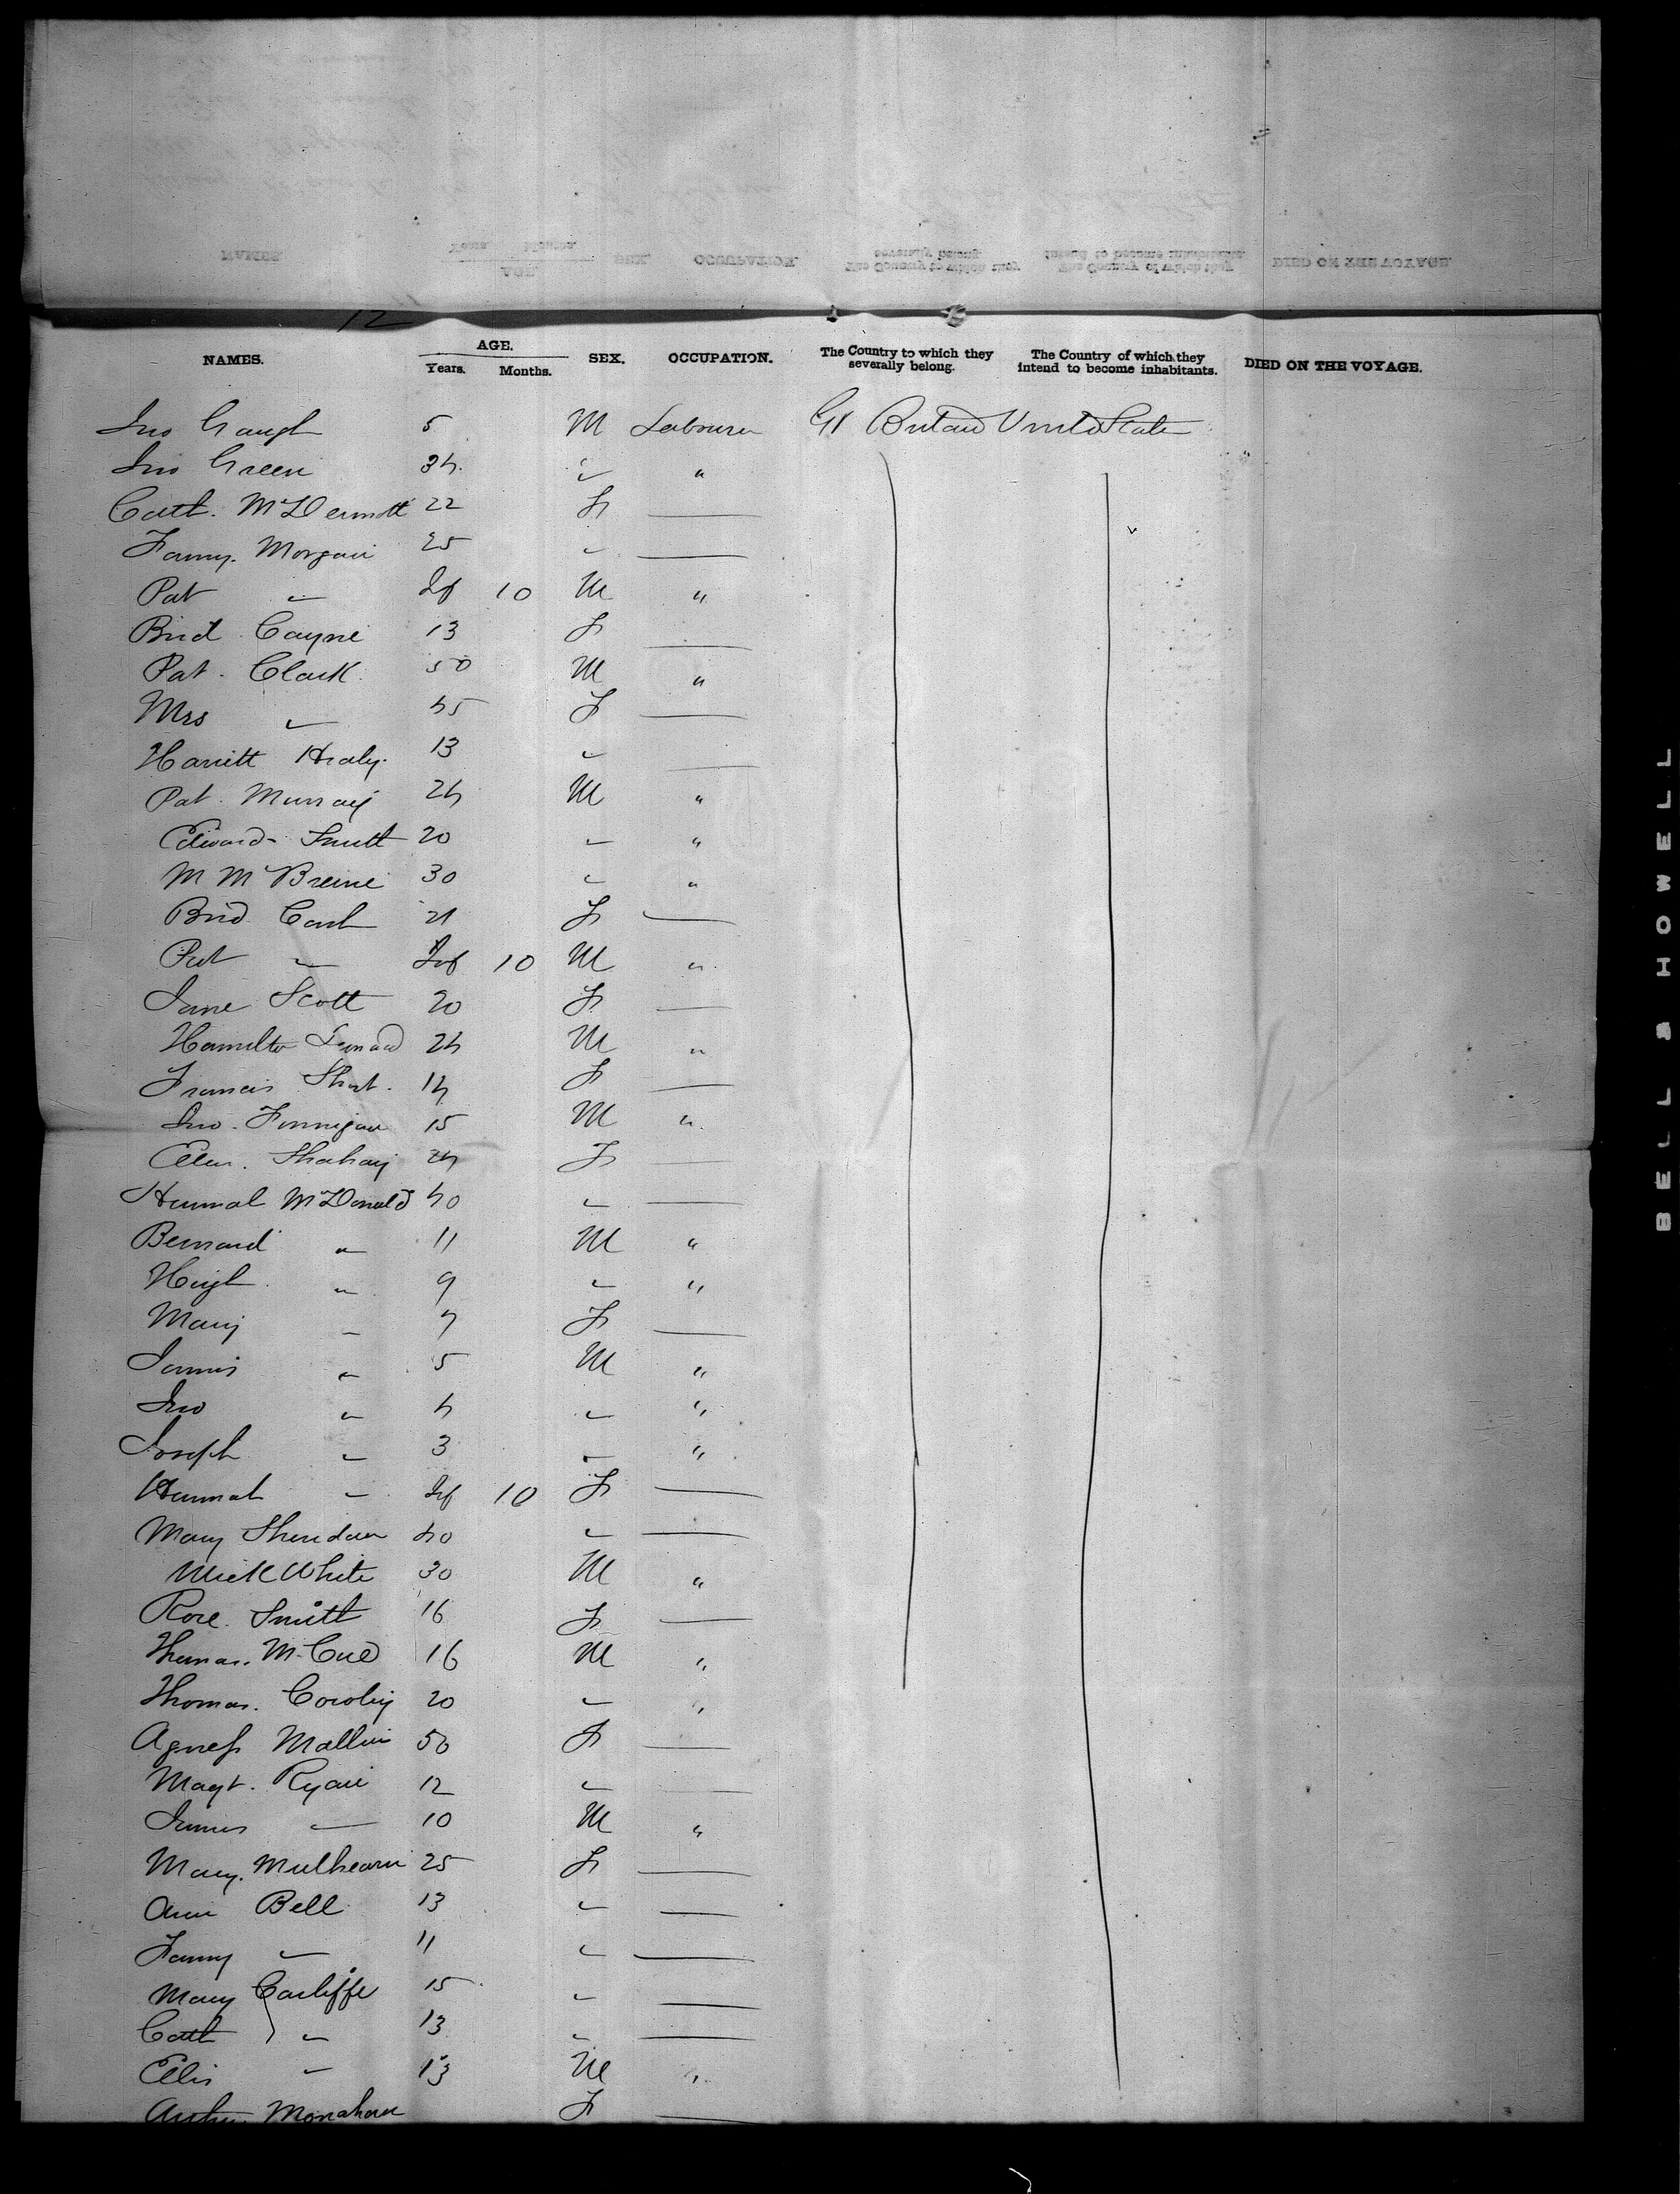 12
NAMES. AGE. Years. Months. SEX. OCCUPATION. The Country to which they severally belong. The Country of which they intend to become inhabitants. DIED ON THE VOYAGE.
Jno Gaugh 5 M Labourer Gt Britain United States
Jno Green 34 " "
Cath. McDermott 22 F
Fanny. Morgan 25 "
Pat " Inf 10 M "
Brid Coyne 13 F
Pat. Clark 50 M "
Mrs " 45 F
Harriett Healy. 13 "
Pat. Murray 24 M "
Edward Smith 20 " "
M McBreine 30 " "
Brid Cash 21 F
Pat " Inf 10 M "
Jane Scott 20 F
Hamilton Lenard 24 M "
Francis Short. 14 F
Jno. Finnigan 15 M "
Ellen. 24 F
Hannah McDonald 40 "
Bernard " 11 M "
Hugh " 9 " "
Mary " 7 F
James " 5 M "
Jno " 4 " "
Joseph " 3 " "
Hannah " Inf 10 F
Mary Sheridan 40 "
Mick White 30 M "
Rose. Smith 16 F
Thomas. McCue 16 M "
Thomas. 20 " "
Agness Mallin 50 F
Magt. Ryan 12 "
James " 10 M "
Mary. Mulhearn 25 F
Ann Bell 13 "
Fanny " 11 "
Mary Carliffe 15 "
Cath " 13 "
Ellis " 13 M "
Monahan F
BELL & HOWELL